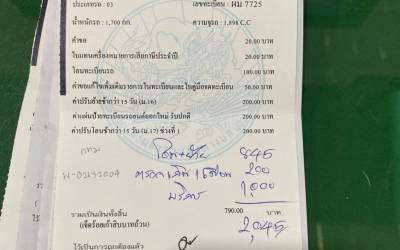 ประเภทรถ : 03 เลขทะเบียน : ผม 7725
น้ำหนักรถ : 1,700 กก. ความจุรถ : 1,898 C.C
ค่าขอ 20.00 บาท
ใบแทนเครื่องหมายการเสียภาษีประจำปี 20.00 บาท
โอนทะเบียนรถ 100.00 บาท
ค่าขอแก้ไขเพิ่มเติมรายการในทะเบียนและใบคู่มือจดทะเบียน 50.00 บาท
ค่าปรับย้ายช้ากว่า 15 วัน (ม.16) 200.00 บาท
ค่าแผ่นป้ายทะเบียนรถยนต์ออกใหม่ รับปกติ 200.00 บาท
ค่าปรับโอนช้ากว่า 15 วัน (ม.17) ช่วงที่ 1 200.00 บาท
845
200
บริการ 1,000
รวมเป็นเงินทั้งสิ้น 790.00 บาท
(เจ็ดร้อยเก้าสิบบาทถ้วน) 2,045
ไว้เป็นการถูกต้องแล้ว